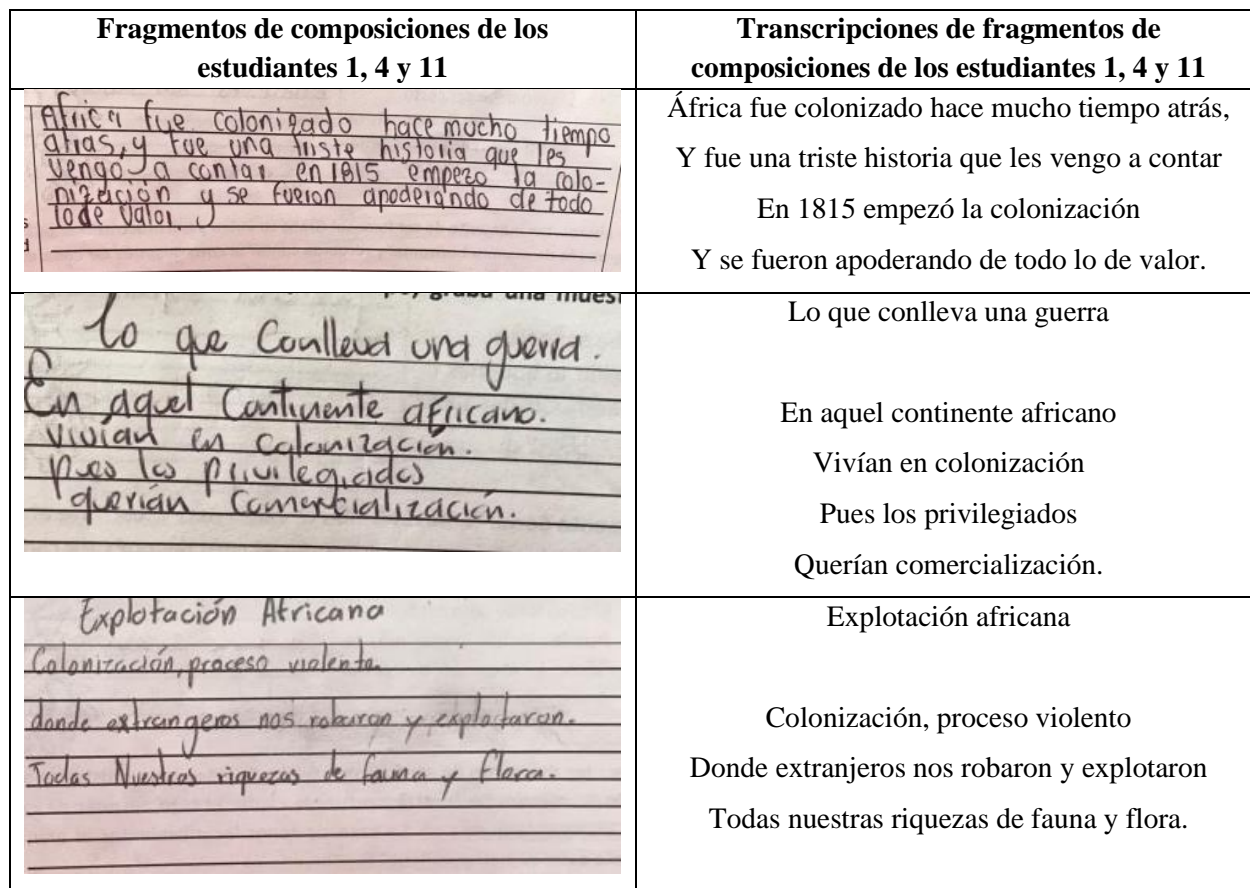 Fragmentos de composiciones de los
estudiantes 1, 4 y 11
Transcripciones de fragmentos de
composiciones de los estudiantes 1, 4 y 11
Africa fue colonizado hace mucho tiempo
atras, y fue una triste historia que les
vengo a contar en 1815 empezo la colo-
nización y se fueron apoderando de todo
lo de valor
África fue colonizado hace mucho tiempo atrás,
Y fue una triste historia que les vengo a contar
En 1815 empezó la colonización
Y se fueron apoderando de todo lo de valor.
una
lo que Conlleva una guerra.
En aquel Continente africano.
vivían en Colonización.
pues los privilegiados
querián Comercialización.
Lo que conlleva una guerra
En aquel continente africano
Vivían en colonización
Pues los privilegiados
Querían comercialización.
Explotación Africana
Colonización, proceso violento
donde extrangeros nos robaron y explotaron.
Todas Nuestras riquezas de fauna y flora.
Explotación africana
Colonización, proceso violento
Donde extranjeros nos robaron y explotaron
Todas nuestras riquezas de fauna y flora.